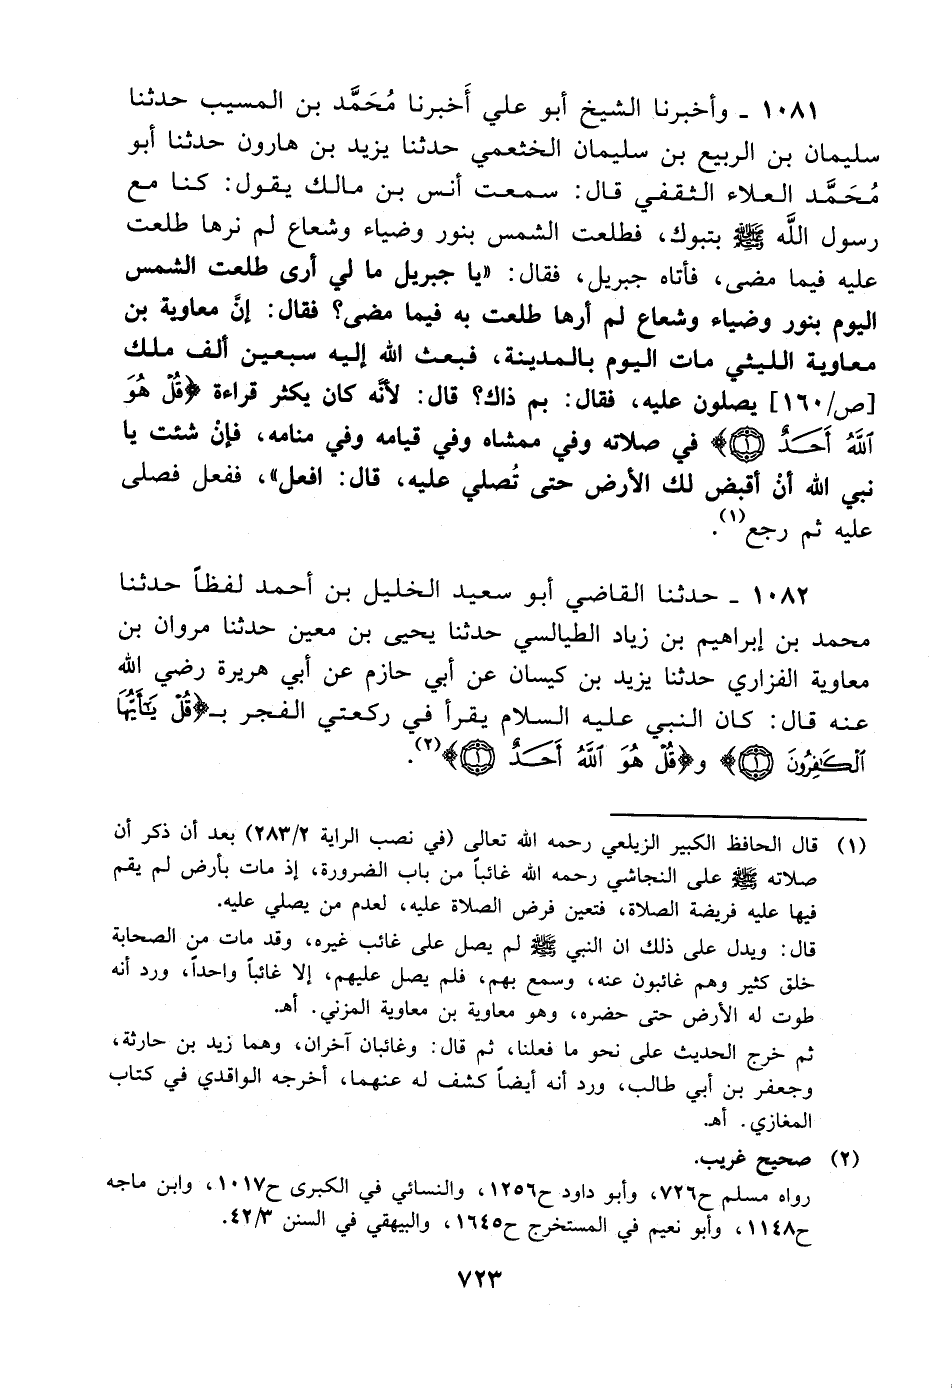 ١٠٨١ ـ وأخبرنا الشيخ أبو علي أَخبرنا مُحَمَّد بن المسيب حدثنا
سليمان بن الربيع بن سليمان الخثعمي حدثنا يزيد بن هارون حدثنا أبو
مُحَمَّد العلاء الثقفي قال: سمعت أنس بن مالك يقول: كنا مع
رسول اللَّه ﷺ بتبوك، فطلعت الشمس بنور وضياء وشعاع لم نرها طلعت
عليه فيما مضى، فأتاه جبريل، فقال: «يا جبريل ما لي أرى طلعت الشمس
اليوم بنور وضياء وشعاع لم أرها طلعت به فيما مضى؟ فقال: إنَّ معاوية بن
معاوية الليثي مات اليوم بالمدينة، فبعث الله إليه سبعين ألف ملك
[ص/١٦٠] يصلون عليه، فقال: بم ذاك؟ قال: لأنَّه كان يكثر قراءة ﴿قُلْ هُوَ
ٱللَّهُ أَحَدٌ ۝١﴾ في صلاته وفي ممشاه وفي قيامه وفي منامه، فإنْ شئت يا
نبي الله أنْ أقبض لك الأرض حتى تُصلي عليه، قال: افعل»، ففعل فصلى
عليه ثم رجع(١).
١٠٨٢ ـ حدثنا القاضي أبو سعيد الخليل بن أحمد لفظاً حدثنا
محمد بن إبراهيم بن زياد الطيالسي حدثنا يحيى بن معين حدثنا مروان بن
معاوية الفزاري حدثنا يزيد بن كيسان عن أبي حازم عن أبي هريرة رضي الله
عنه قال: كان النبي عليه السلام يقرأ في ركعتي الفجر بـ﴿قُلْ يَـٰٓأَيُّهَا
ٱلْكَـٰفِرُونَ ۝١﴾ و﴿قُلْ هُوَ ٱللَّهُ أَحَدٌ ۝١﴾(٢).
(١) قال الحافظ الكبير الزيلعي رحمه الله تعالى (في نصب الراية ٢٨٣/٢) بعد أن ذكر أن
صلاته ﷺ على النجاشي رحمه الله غائباً من باب الضرورة، إذ مات بأرض لم يقم
فيها عليه فريضة الصلاة، فتعين فرض الصلاة عليه، لعدم من يصلي عليه.
قال: ويدل على ذلك ان النبي ﷺ لم يصل على غائب غيره، وقد مات من الصحابة
خلق كثير وهم غائبون عنه، وسمع بهم، فلم يصل عليهم، إلا غائباً واحداً، ورد أنه
طوت له الأرض حتى حضره، وهو معاوية بن معاوية المزني. أهـ.
ثم خرج الحديث على نحو ما فعلنا، ثم قال: وغائبان آخران، وهما زيد بن حارثة،
وجعفر بن أبي طالب، ورد أنه أيضاً كشف له عنهما، أخرجه الواقدي في كتاب
المغازي. أهـ.
(٢) صحيح غريب.
رواه مسلم ح٧٢٦، وأبو داود ح١٢٥٦، والنسائي في الكبرى ح١٠١٧، وابن ماجه
ح١١٤٨، وأبو نعيم في المستخرج ح١٦٤٥، والبيهقي في السنن ٤٢/٣.
٧٢٣